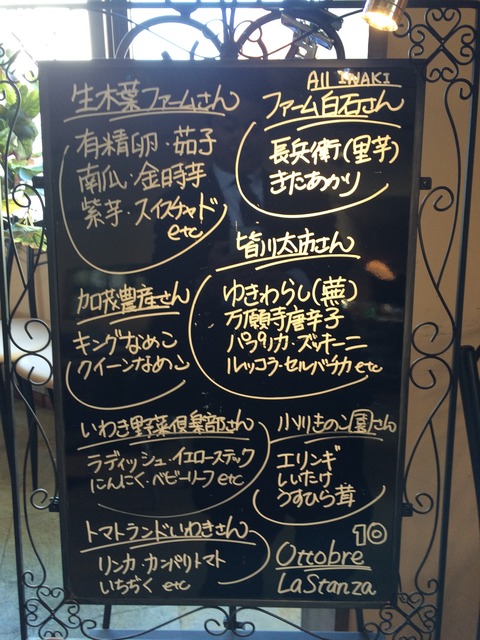 All IWAKI
生木葉ファームさん
有精卵・茄子
南瓜・金時芋
紫芋・スイスチャド
etc
ファーム白石さん
長兵衛(里芋)
きたあかり
皆川太市さん
ゆきわらし(蕪)
万願寺唐辛子
パプリカ・ズッキーニ
ルッコラ・セルバチカ etc
加茂農産さん
キングなめこ
クイーンなめこ
いわき野菜倶楽部さん
ラディッシュ・イエローステック
にんにく・ベビーリーフ etc
小川きのこ園さん
エリンギ
しいたけ
うすひら茸
トマトランドいわきさん
リンカ・カンパリトマト
いちぢく etc
10
Ottobre
LaStanza